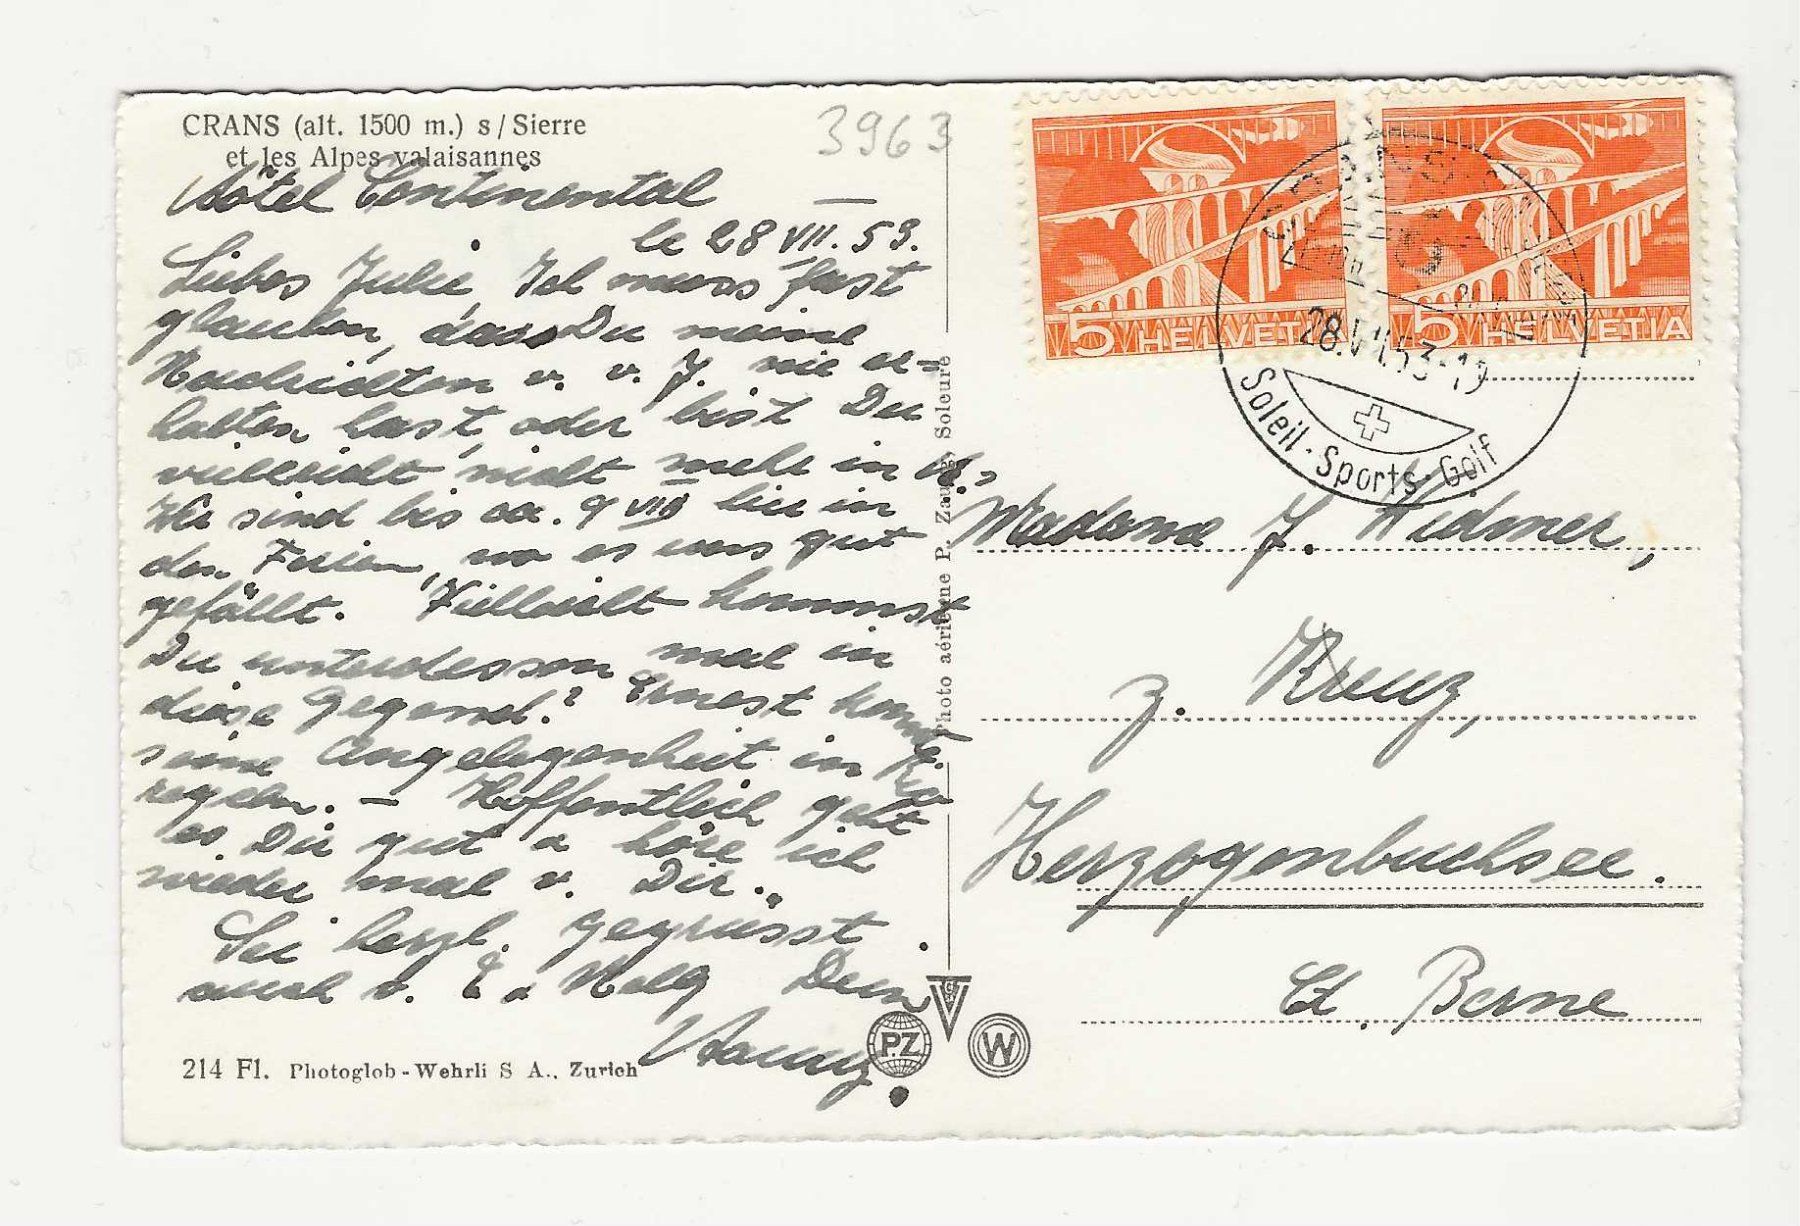 CRANS (alt. 1500 m.) s/Sierre
et les Alpes valaisannes
3963
Hôtel Continental —
le 28 VII. 53.
Liebes Julie Ich muss fast
glauben, dass Du meine
Nachrichten v. v. J. nie er=
halten hast, oder bist Du
vielleicht nicht mehr in H.,
Wir sind bis ca. 9 VIII hier in
den Ferien, wo es uns gut
gefällt. Vielleicht kommst
Du unterdessen mal in
diese Gegend? Ernest konnte
seine Angelegenheit in
regeln. – Hoffentlich geht
es Dir gut u höre ich
wieder mal v. Dir.
Sei herzl. gegrüsst
auch v. E u Dein
214 Fl. Photoglob-Wehrli S A., Zurich
Photo aérienne P. Zaugg Soleure
PZ
W
5 HELVETIA
5 HELVETIA
28.VII.53-19
Soleil - Sports - Golf
Madame J. Widmer,
z. Kreuz,
Herzogenbuchsee.
Ct. Berne